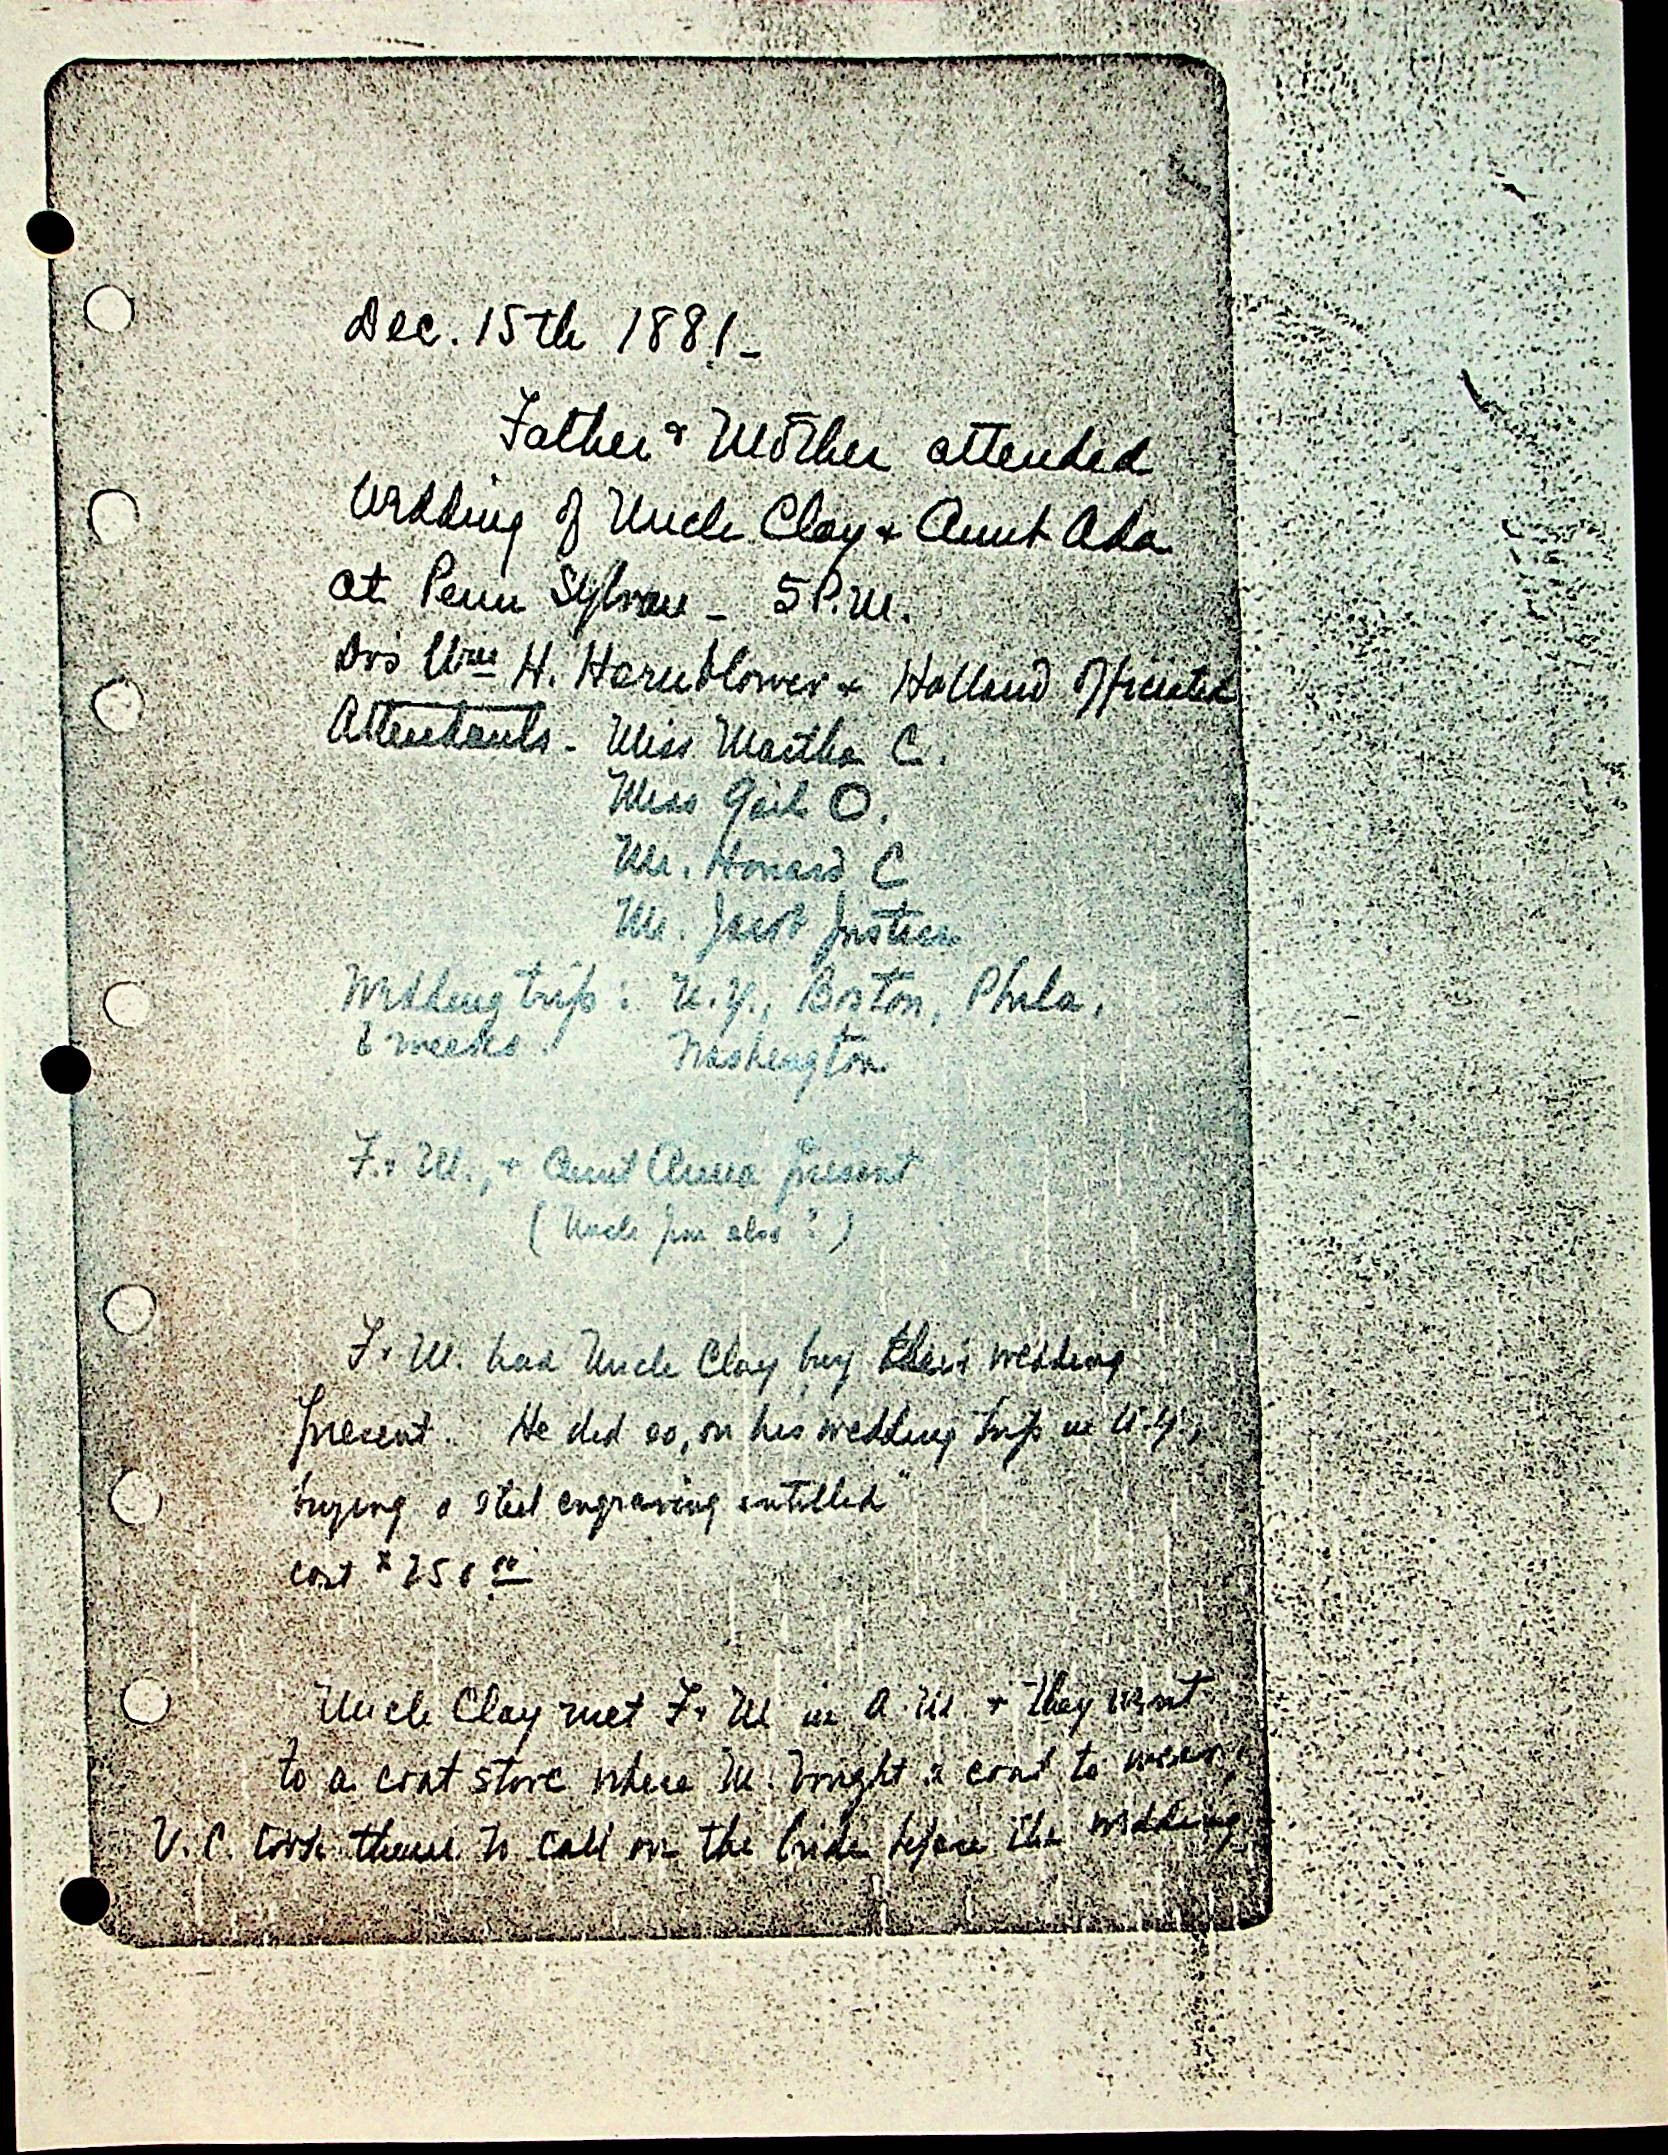 Dec. 15th 1881-
Father & Mother attended
Wedding of Uncle Clay & Aunt Ada
at Penn Sylvan - 5 P.M.
Drs Wm H. Hornblower & Holland Officiated
Attendants - Miss Martha C.
Miss Gail O.
Mr. Howard C
Mr. Jacob Justice
Wedding trip: N.Y., Boston, Phila,
6 weeks. Washington
F. & M., + Aunt Anna present
(Uncle Jim also?)
F. & M. had Uncle Clay buy their wedding
present. He did so, on his wedding trip in N.Y.,
buying a steel engraving entitled "
cost $
Uncle Clay met F. & M in A.M. & they went
to a coat store where M. bought a coat to wear,
U.C. took them to call on the bride before the wedding